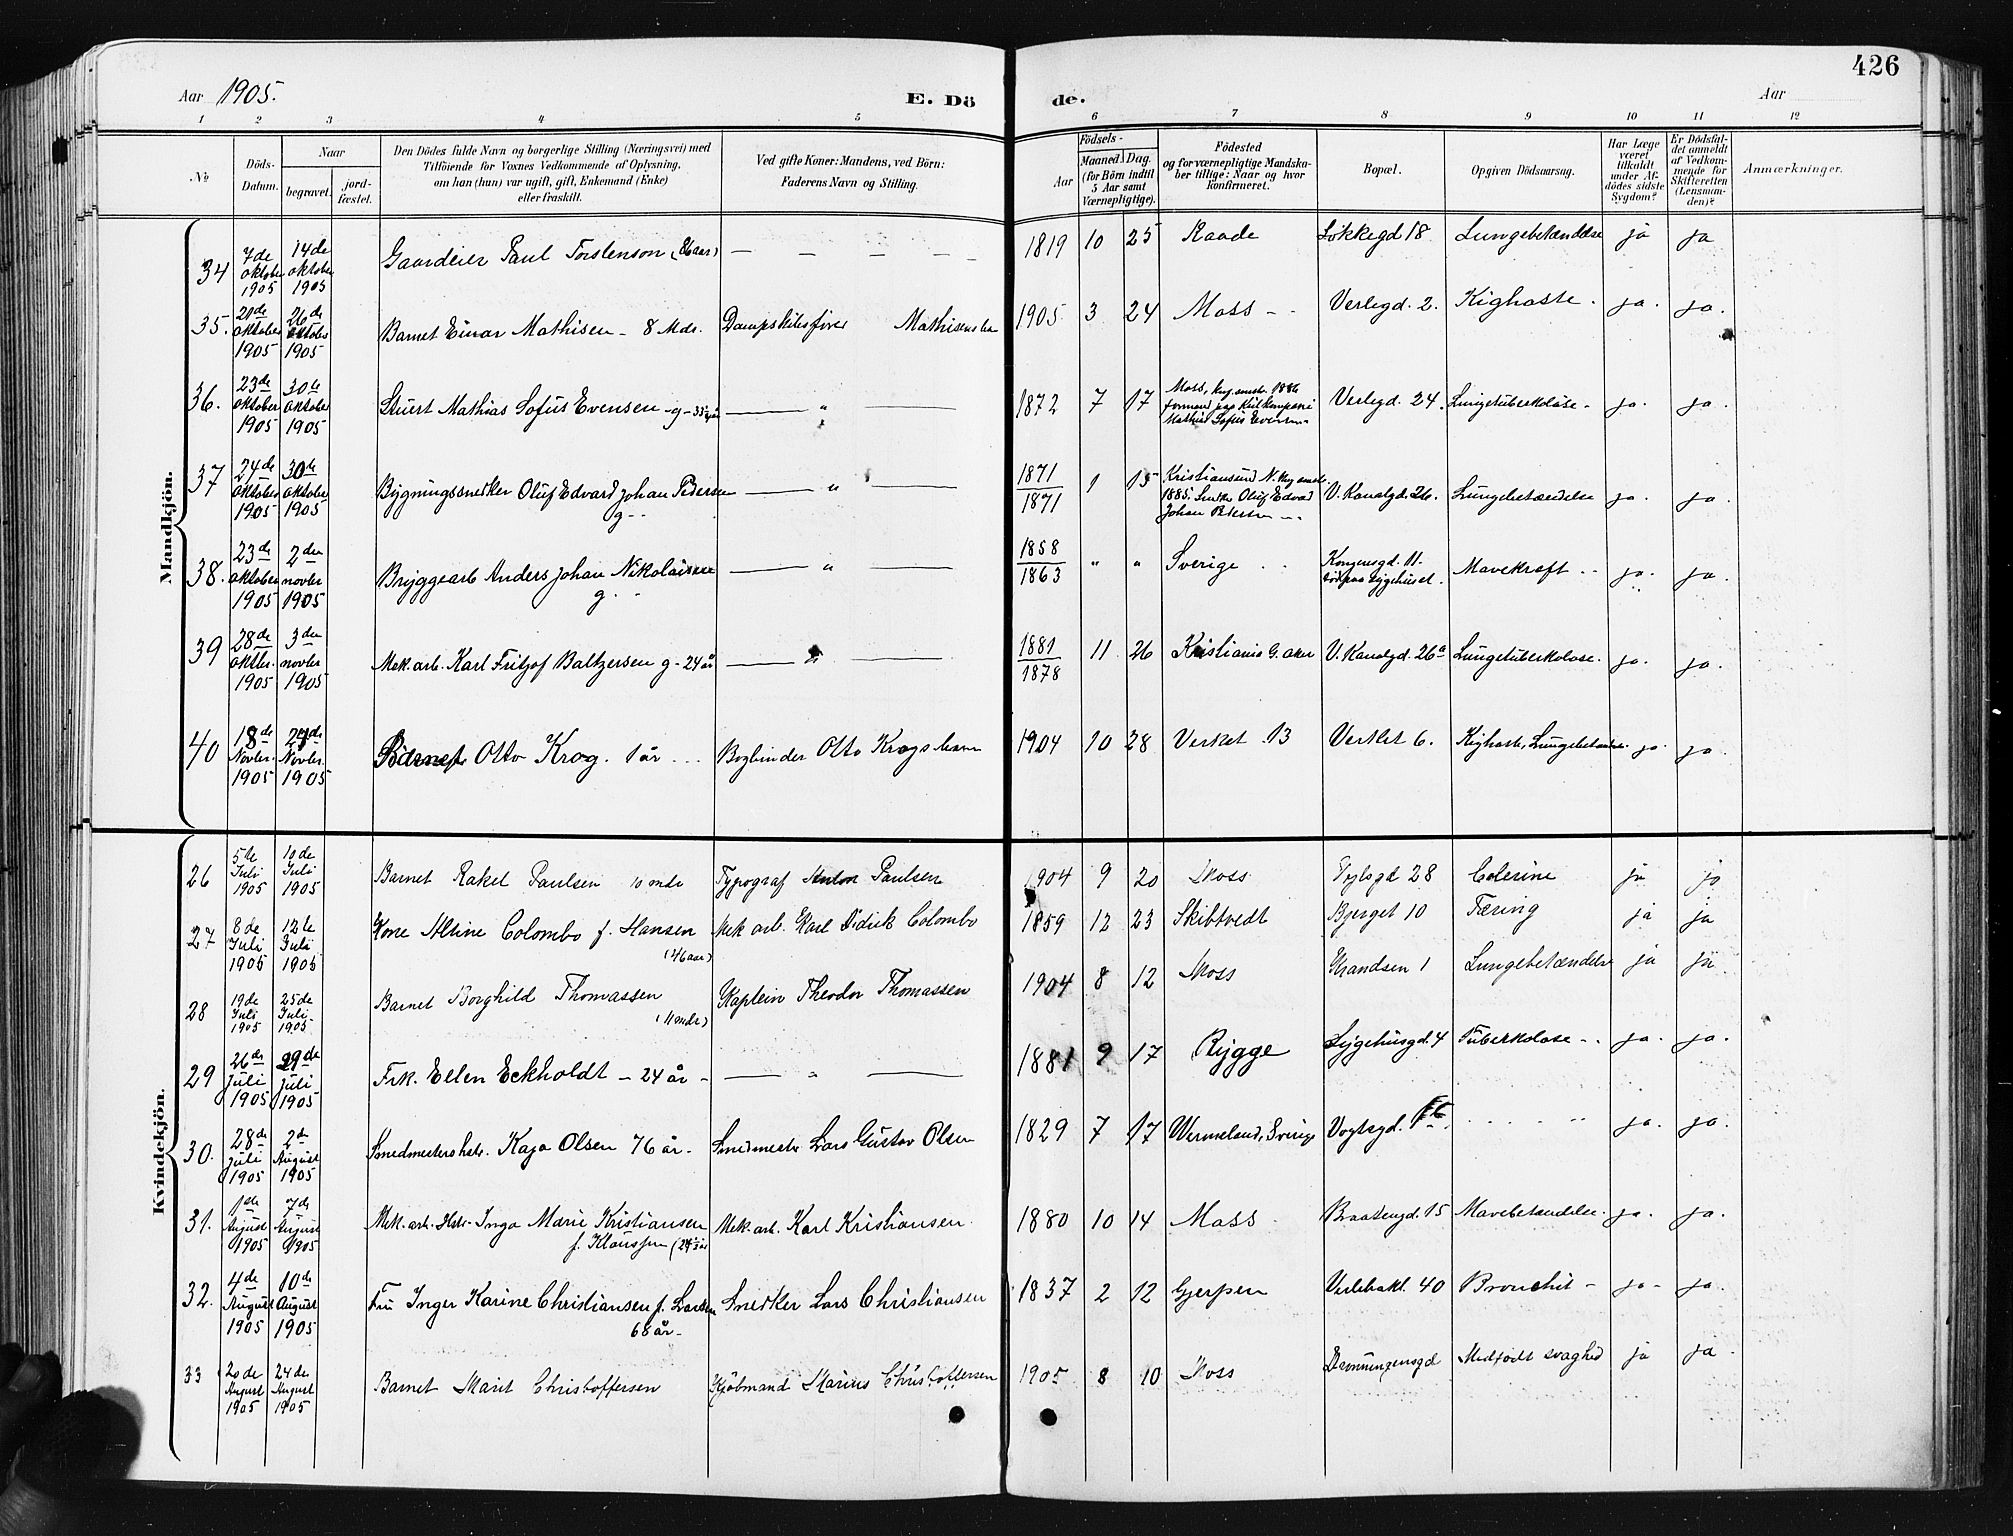 426
Aar 1905.
E. Dö
de.
Aar
1 2 3 4 5 6 7 8 9 10 11 12
No
Döds-
Datum.
Naar
begravet.
jord-
fæstet.
Den Dödes fulde Navn og borgerlige Stilling (Næringsvei) med
Tilföiende for Voxnes Vedkommende af Oplysning,
om han (hun) var ugift, gift, Enkemand (Enke)
eller fraskilt.
Ved gifte Koner: Mandens, ved Börn:
Faderens Navn og Stilling.
Födsels-
Aar
Maaned. Dag.
(for Börn indtil
5 Aar samt
Værnepligtige).
Födested
og for værnepligtige Mandska-
ber tillige: Naar og hvor
konfirmeret.
Bopæl.
Opgiven Dödsaarsag.
Har Læge
været
tilkaldt
under Af-
dödes sidste
Sygdom?
Er Dödsfal-
det anmeldt
af Vedkom-
mende for
Skifteretten
(Lensman-
den)?
Anmærkninger.
Mandkjön.
34 7de oktober 1905 14de oktober 1905 Gaardeier Paul Torstenson (86 aar) — — — — — 1819 10 25 Raade Løkkegd 18 Lungebetændelse ja ja
35. 20de oktober 1905 26de oktober 1905 Barnet Einar Mathisen – 8 Mdr. Dampskibsfører Mathisens 1905 3 24 Moss – Verlegd. 2. Kighoste. ja. ja.
36. 23de oktober 1905 30te oktober 1905 Stuert Mathias Sofus Evensen – g – — " — 1872 7 17 Moss, 1886
Mathias Sofus Evensen Verlegd. 24. Lungetuberkolose – ja. ja.
37 24de oktober 1905 30te oktober 1905 Bygningssnedker Oluf Edvard Johan Pedersen
g. — " — 1871
1871 1 15 Kristiansund N.
1885. Oluf Edvard
Johan V. Kanalgd. 26. Lungebetændelse ja. ja.
38. 23de oktober 1905 2den novbr 1905 Bryggearb Anders Johan Nikolaisen
g. — " — 1858
1863 " " Sverige Kongensgd. 11.
død paa Sygehuset. Mavekræft ja. ja.
39 28de oktbr. 1905 3die novbr 1905 Mek. arb. Karl Fritjof Baltzersen g – 24 år — " — 1881
1878 11 26 Kristiania G. aker V. Kanalgd. 26a Lungetuberkolose. ja. ja.
40 18de Novbr. 1905 24de Novbr. 1905 Barnet Otto Krog. 1 år Bogbinder Otto Krogs 1904 10 28 Verket 13 Verket 6. Kighoste, Lungebetændelse ja. ja.
Kvindekjön.
26 5te Juli 1905 10de Juli 1905 Barnet Rakel Paulsen 10 mdr Typograf Anton Paulsen 1904 9 20 Moss Fogtsgd 28 Colerine ja ja
27 8de Juli 1905 12te Juli 1905 Kone Alvine Colombo f. Hansen
(46 aar) Mek arb. Karl Didrik Colombo 1859 12 23 Skibtvedt Bjerget 10 Tæring ja ja
28 19de Juli 1905 25de Juli 1905 Barnet Borghild Thomassen
(11 mdr) Kaptein Theodor Thomassen 1904 8 12 Moss Strandsen 1 Lungebetændelse ja ja
29 26de juli 1905 29de juli 1905 Frk. Ellen Eckholdt – 24 år – — " — 1881 9 17 Rygge Sygehusgd. 4 Tuberkolose ja. ja.
30. 28de juli 1905 2den August 1905 Smedmestershstr. Kaja Olsen 76 år. Smedmester Lars Gustav Olsen 1829 7 17 Wermeland, Sverige Vogtsgd. ja. ja.
31. 1ste August 1905 7de August 1905 Mek. arb. Hstr. Inga Marie Kristiansen
f. Klaussen Mek. arb. Karl Kristiansen. 1880 10 14 Moss Braatengd. 15 Mavebetændelse. ja. ja.
32. 4de August 1905 10de August 1905 Fru Inger Karine Christiansen f. Larsen
68 år – Snedker Lars Christiansen 1837 2 12 Gjerpen Verlebakl. 40 Bronchit – ja – ja.
33 20de August 1905 24de August 1905 Barnet Marit Christoffersen Kjøbmand Marius Christoffersen 1905 8 10 Moss Dronningensgd Medfødt svaghed ja ja